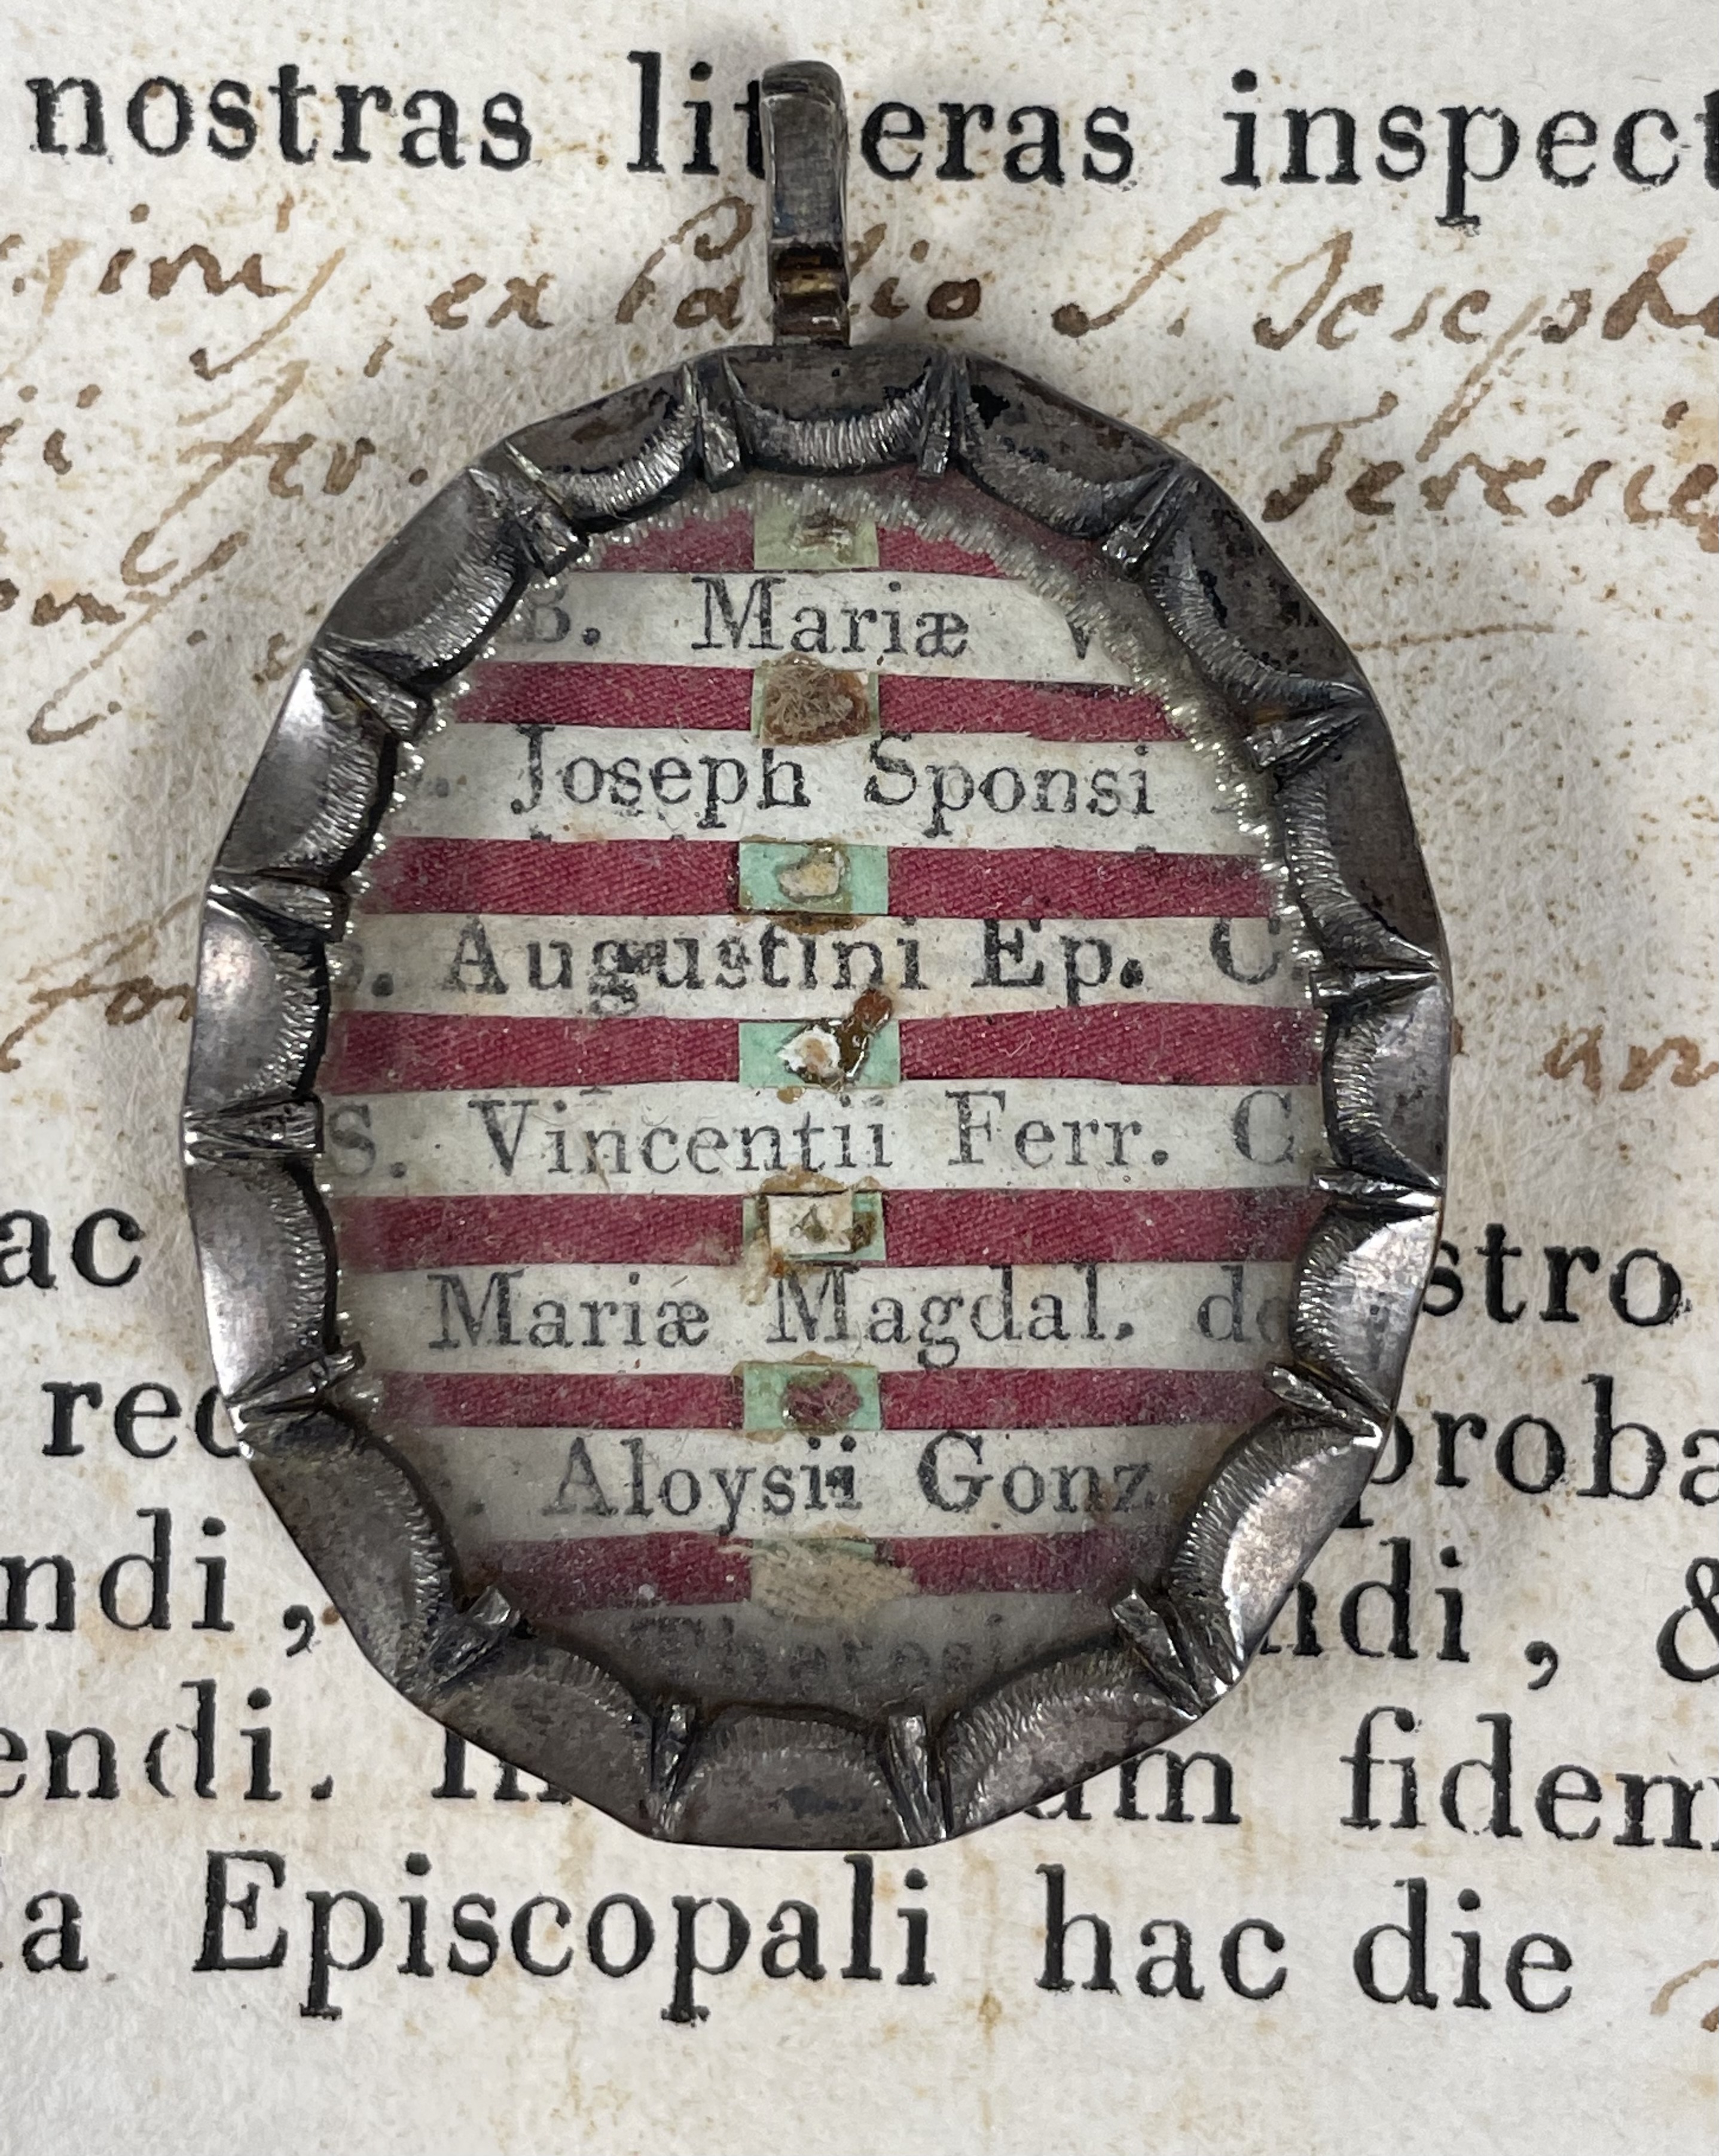 nostras litteras inspect
ex Pallio S. Joseph
Fer. Teresie
B. Mariæ V
Joseph Sponsi
S. Augustini Ep. C.
S. Vincentii Ferr. C.
Mariæ Magdal. de
Aloysii Gonz
Theresi
ac stro
rec proba
ndi, ndi, &
endi. In am fidem
la Episcopali hac die